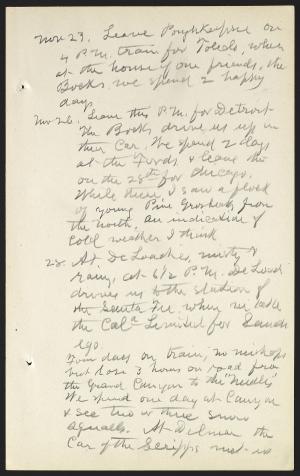 Nov 23. Leave Poughkeepsie on
4 P.M. train for Toledo, where
at the house of our friends, the
Bocks, we spend 2 happy
days.
Nov 26. Leave this P.M. for Detroit
The Bocks drive us up in
their car. We spend 2 days
at the Fords & leave there
on the 28th for Chicago.
While there I saw a flock
of young Pine Grosbeaks from
the north, an indication of
cold weather I think.
28. At De Loaches, misty &
rainy, at 6 1/2 P.M. De Loach
drives us to the station of
the Santa Fee, where we take
the Cala Limited for Sandi-
ego.
Four days on train, no mishaps
but lose 3 hours on road from
the Grand Canyon to the "Needles"
We spend one day at Canyon
& see two or three snow
squalls. At Delmar the
Car of the Scripps met us